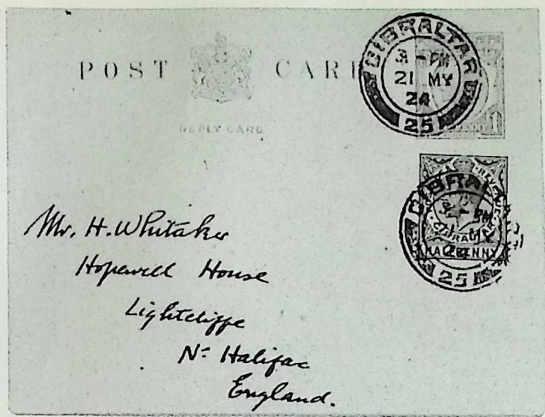 POST CARD
REPLY CARD
GIBRALTAR
3 - PM
21 MY
24
25
GIBRAL
PM
21 MY
HALFPENNY
25
Mr. H. Whitaker
Hopewell House
Lightcliffe
Nr Halifax
England.